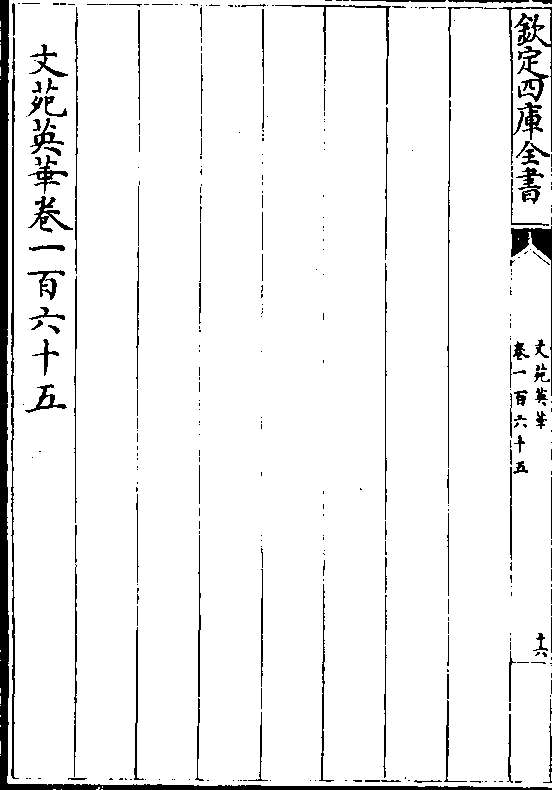 欽定四庫全書
文苑英華
卷一百六十五
十六
文苑英華卷一百六十五